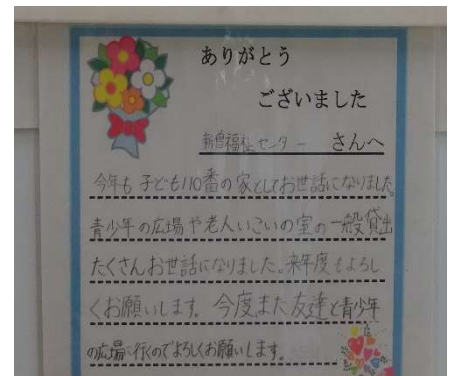 ありがとう
ございました
新宿福祉センター さんへ
今年も子ども110番の家としてお世話になりました。
青少年の広場や老人いこいの室の一般貸出
たくさんお世話になりました。来年度もよろし
くお願いします。今度また友達と青少年
の広場に行くのでよろしくお願いします。